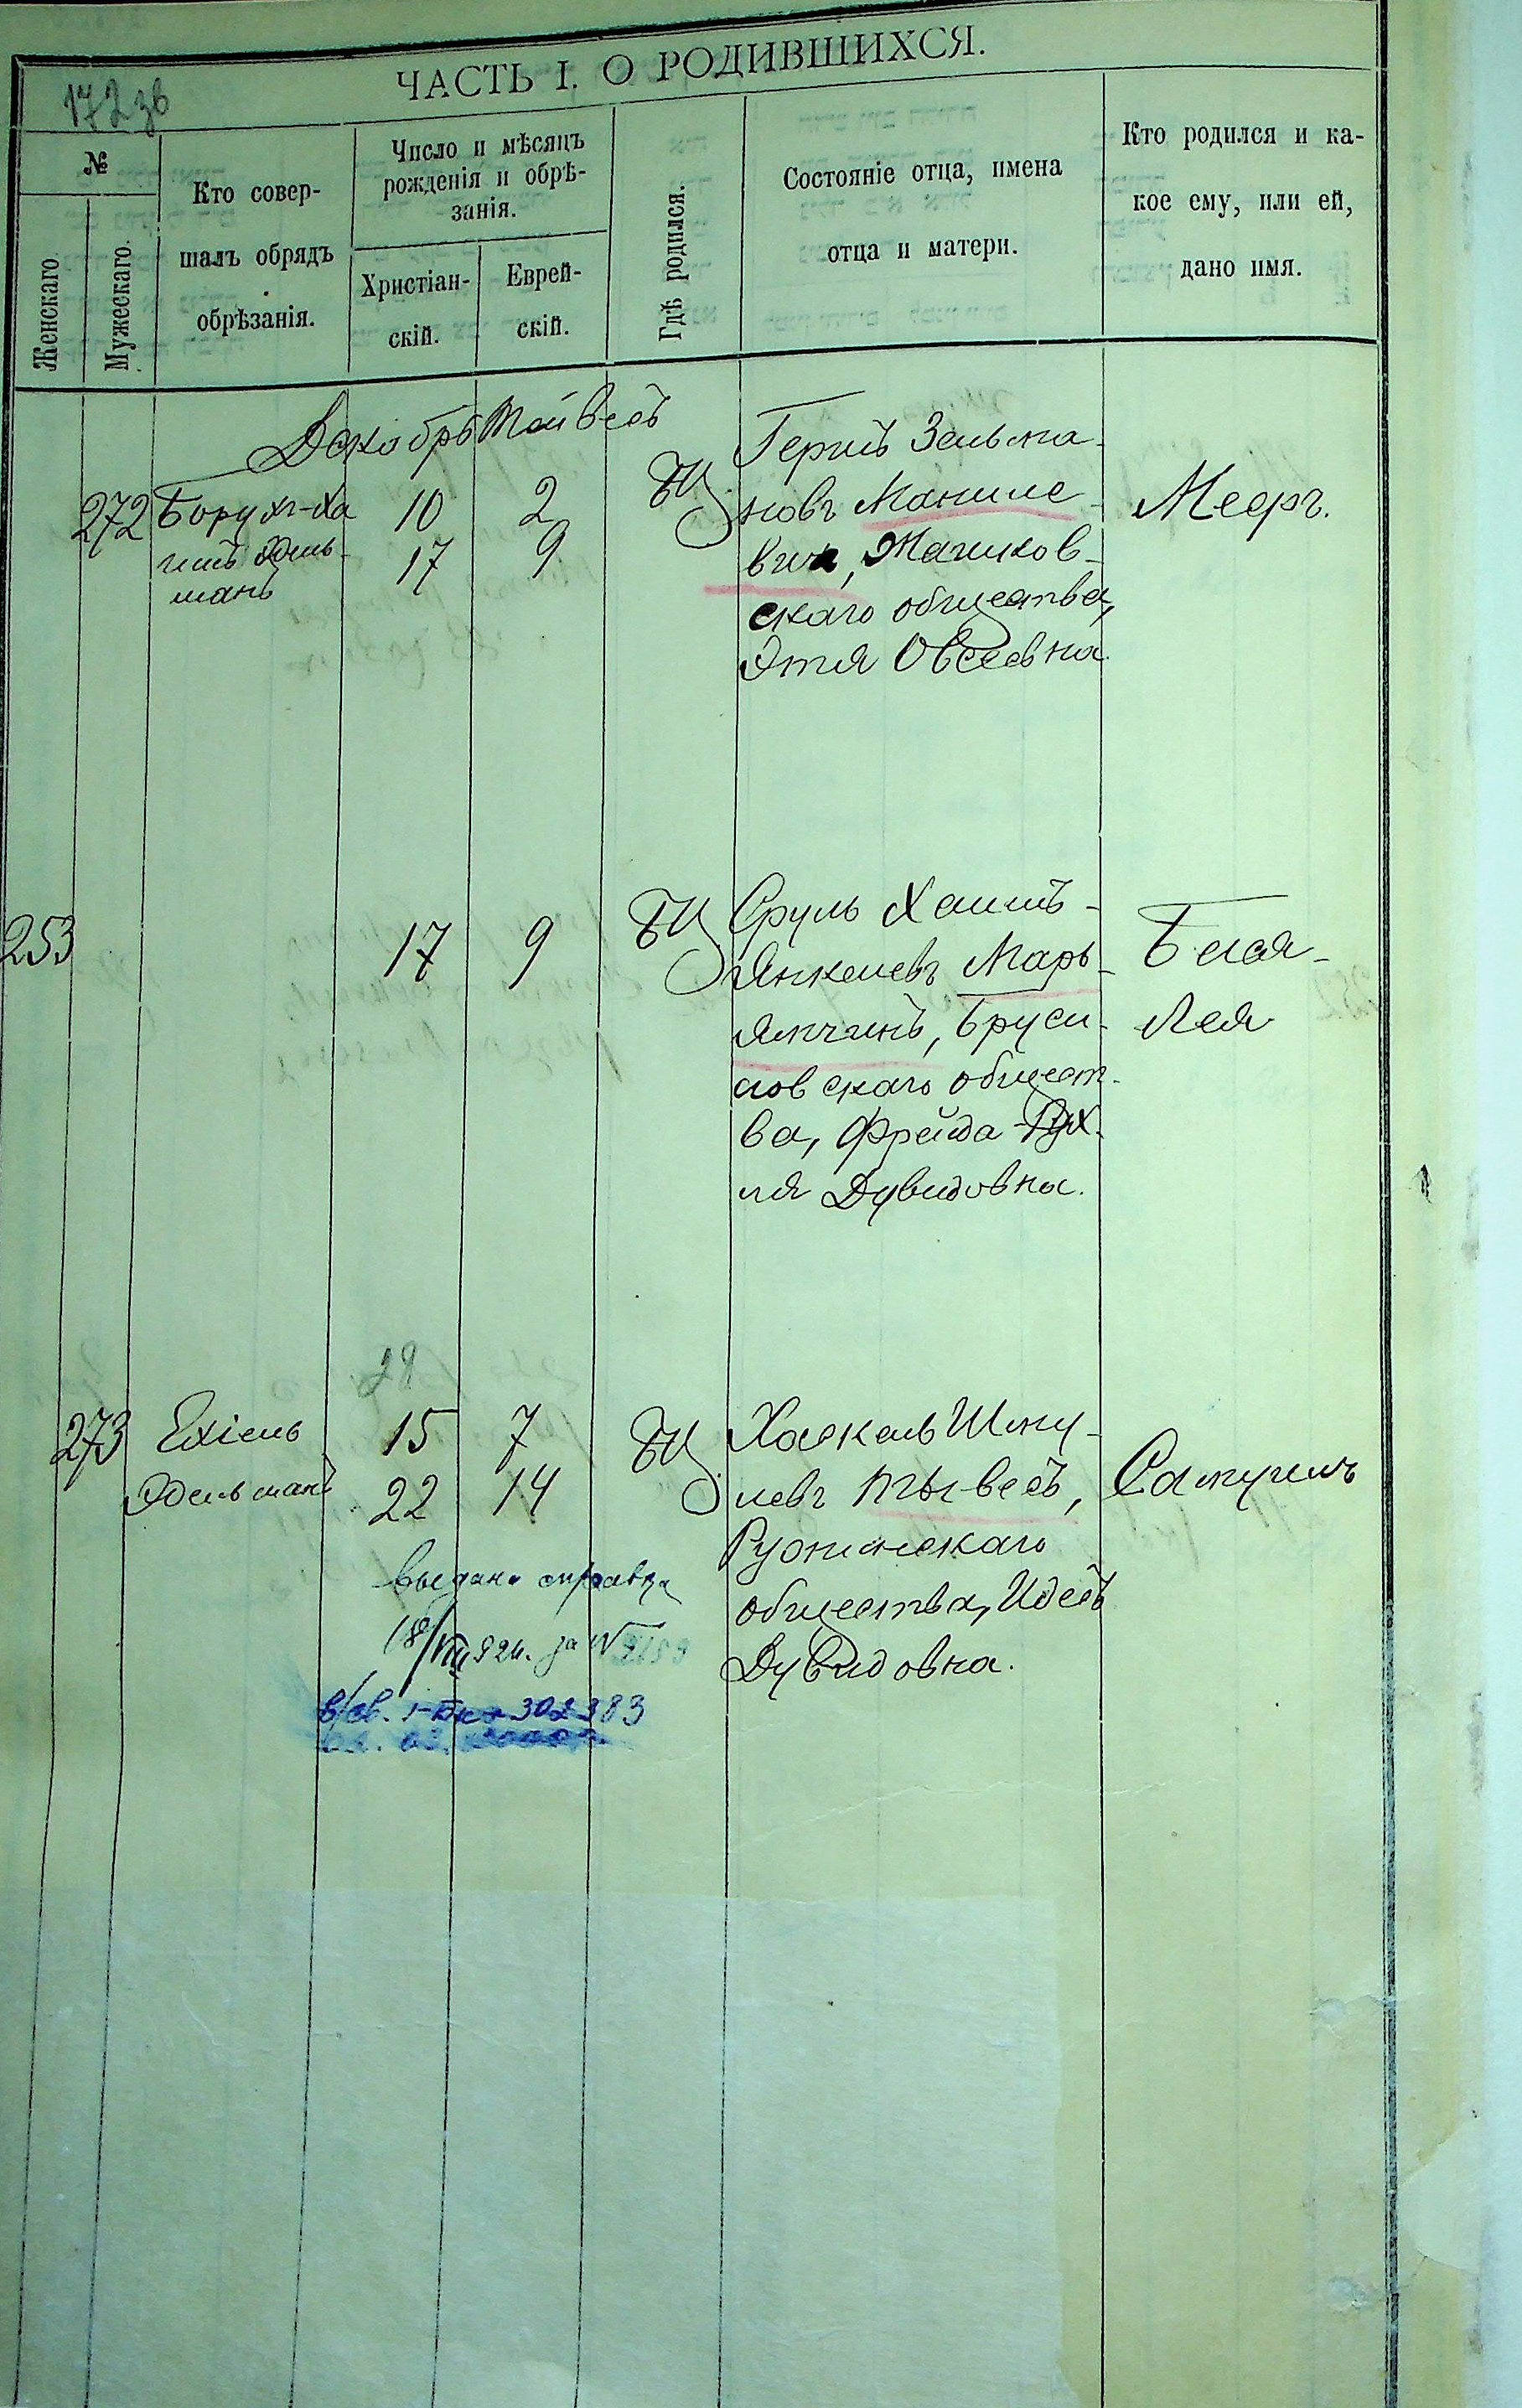 172зв
ЧАСТЬ I. О РОДИВШИХСЯ.
№
Женскаго.
Мужескаго.
Кто совер-
шалъ обрядъ
обрѣзанія.
Число и мѣсяцъ
рожденія и обрѣ-
занія.
Христіан-
скій.
Еврей-
скій.
Гдѣ родился.
Состояніе отца, имена
отца и матери.
Кто родился и ка-
кое ему, или ей,
дано имя.
Декабрь Тейвесъ
272
Борухъ-Ха
имъ Эдель-
манъ
10
17
2
9
БЦ
Гершъ Зельма-
новъ Маниле-
вичъ, Макаров-
скаго общества,
Этя Овсеевна.
Мееръ.
253
17
9
БЦ
Сруль Хаимъ-
Янкелевъ Марь-
ямчикъ, Бруси-
ловскаго общест-
ва, Фрейда-Рух-
ля Дувидовна.
Бася-
Лея
28
273
Ехіель
Эдельманъ
15
22
7
14
БЦ
Хаскель Шму-
левъ Тывесъ,
Ружинскаго
общества, Идесъ
Дувидовна.
Самуилъ
Выдана справка
18/VIII 924. за №
302383